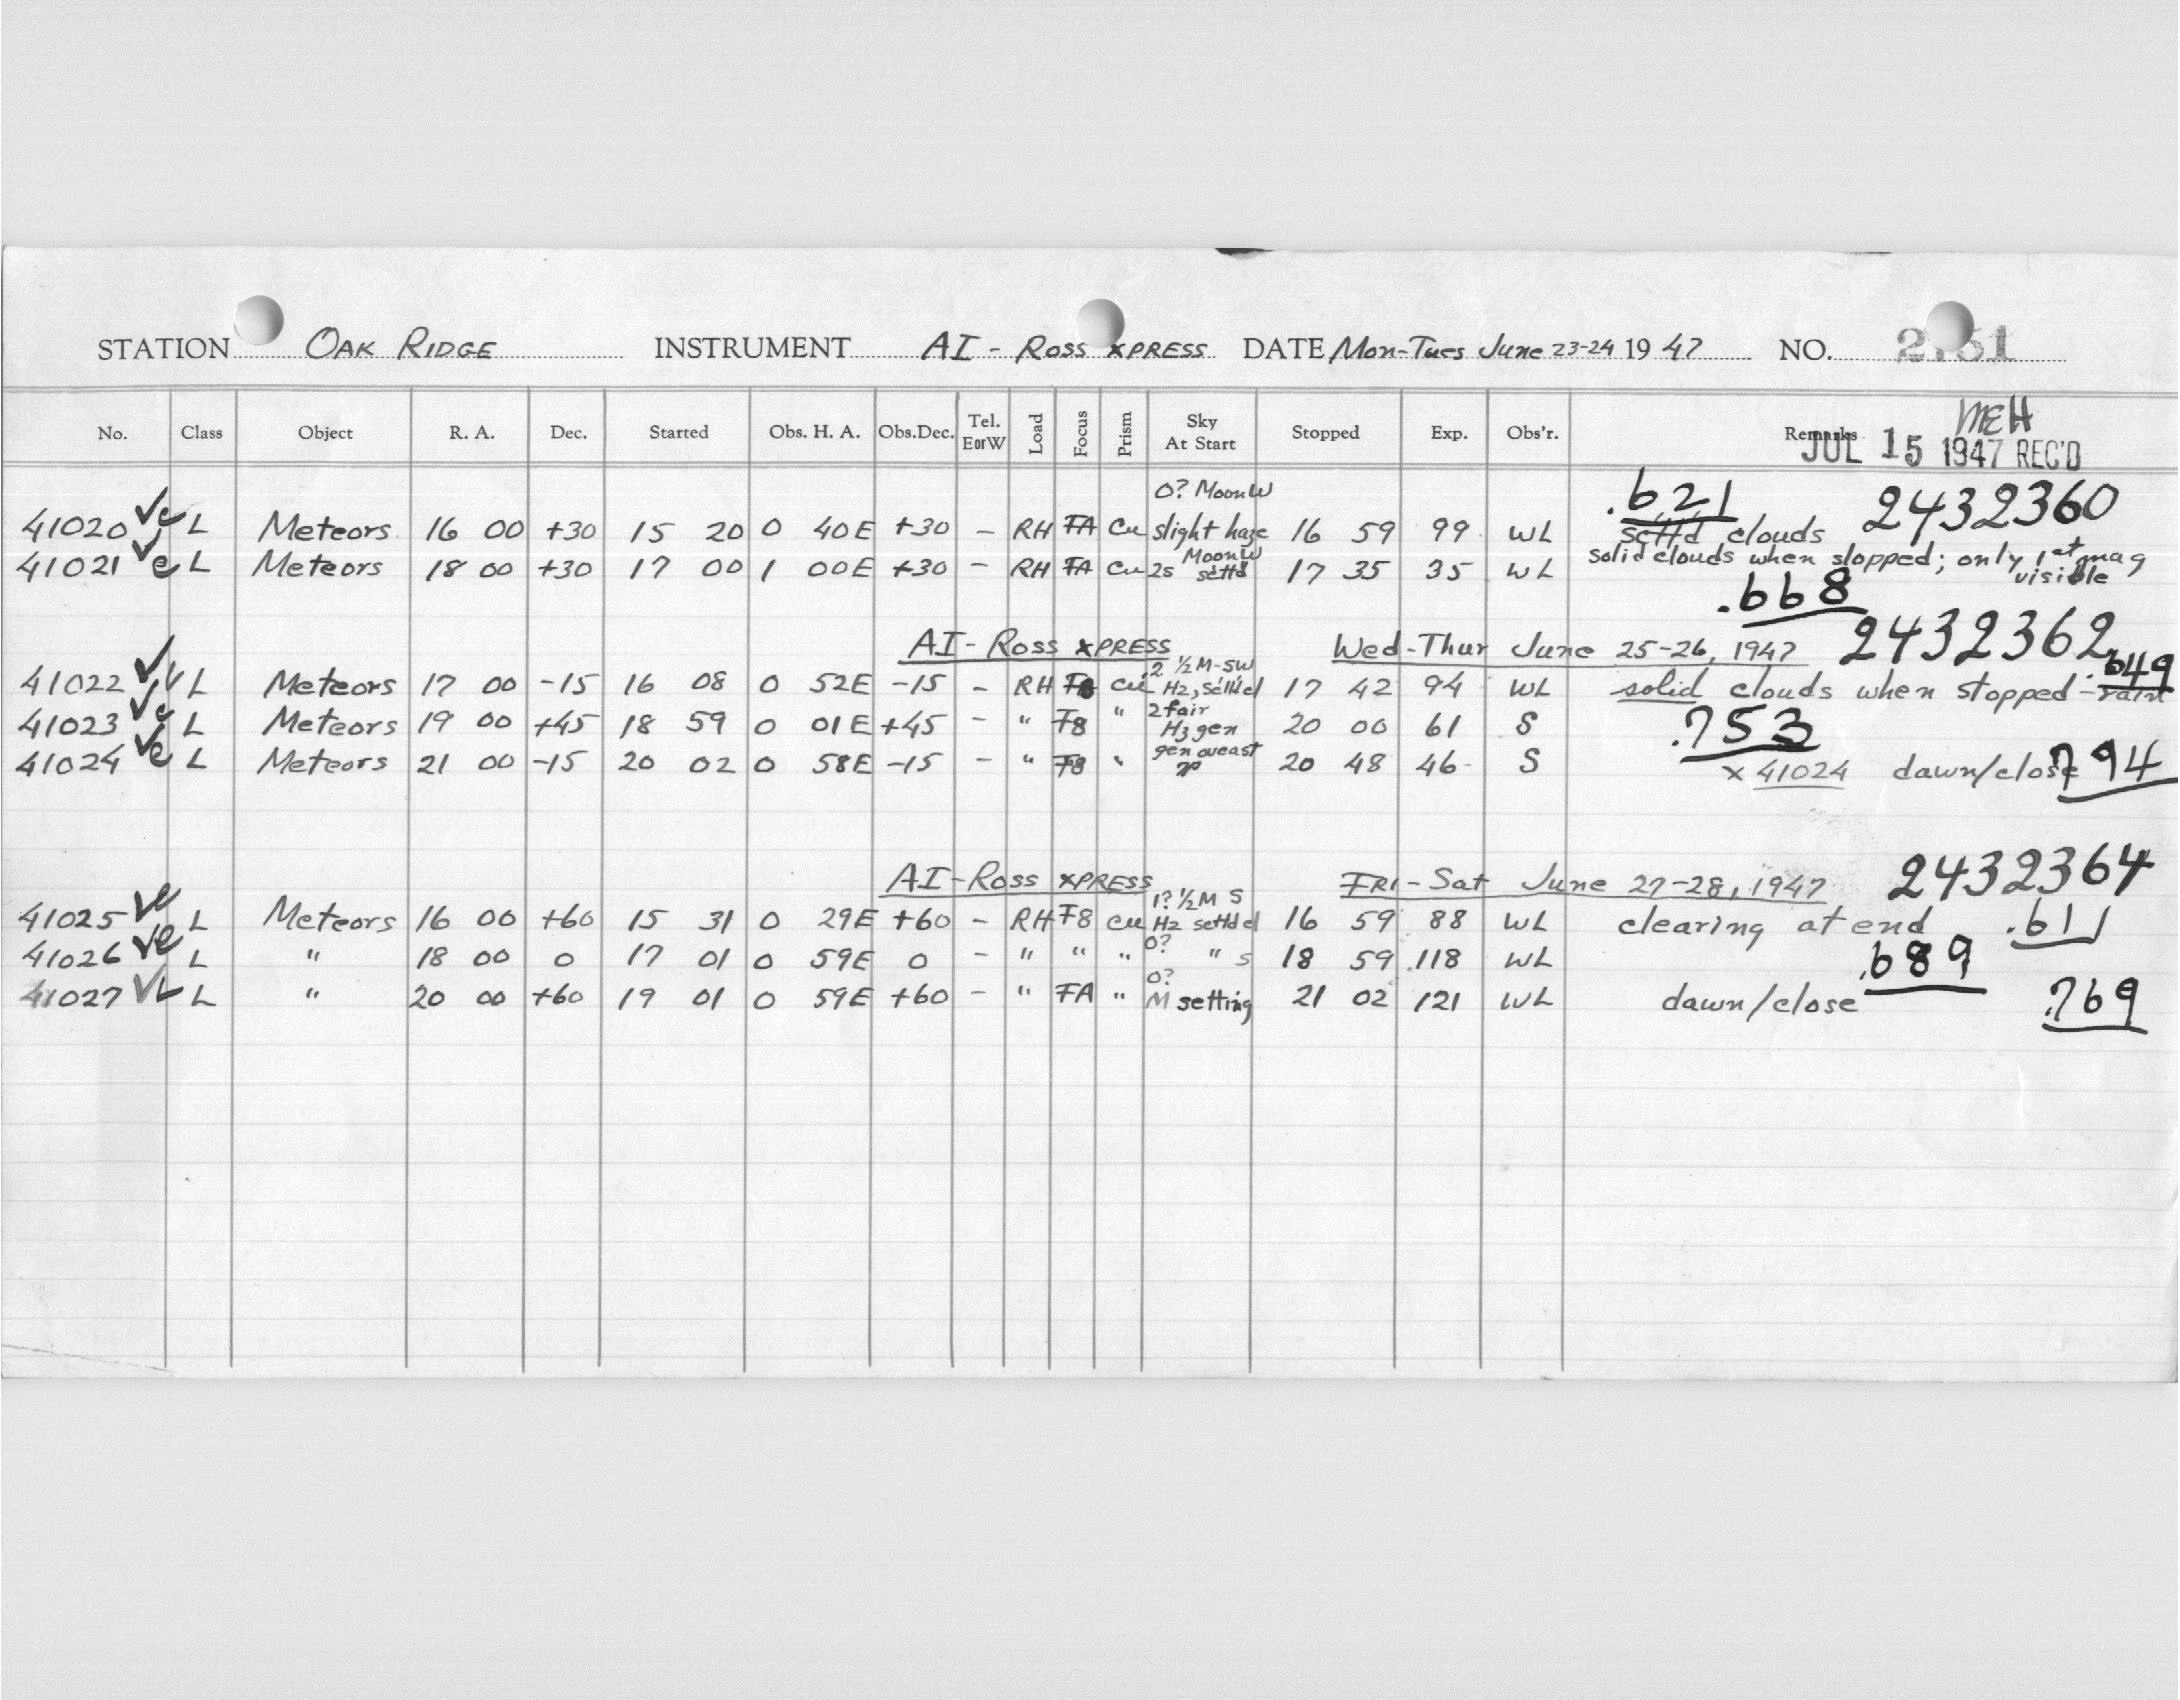 STATION OAK RIDGE INSTRUMENT AI - ROSS XPRESS DATE Mon-Tues June 23-24 1947 NO.
No. Class Object R. A. Dec. Started Obs. H. A. Obs.Dec. Tel. E or W Load Focus Prism Sky At Start Stopped Exp. Obs'r. Remarks
MEH
JUL 15 1947 REC'D
0? Moon W .621 2432360
41020 L Meteors 16 00 +30 15 20 0 40E +30 - RH FA Cu slight haze 16 59 99 WL scttd clouds
41021 L Meteors 18 00 +30 17 00 1 00E +30 - RH FA Cu 2s Moon W scttd 17 35 35 WL solid clouds when stopped; only 1st mag visible
.668
AI - ROSS XPRESS Wed-Thur June 25-26, 1947 2432362
41022 L Meteors 17 00 -15 16 08 0 52E -15 - RH F8 Cu 2 1/2 M-SW H2, scttd cl 17 42 94 WL solid clouds when stopped - rain .649
41023 L Meteors 19 00 +45 18 59 0 01E +45 - " F8 " 2 fair H3 gen 20 00 61 S .753
41024 L Meteors 21 00 -15 20 02 0 58E -15 - " F8 " gen 20 48 46 S x 41024 dawn/close .794
AI-ROSS XPRESS FRI-Sat June 27-28, 1947 2432364
41025 L Meteors 16 00 +60 15 31 0 29E +60 - RH F8 Cu 1? 1/2 M S H2 scttd cl 16 59 88 WL clearing at end .611
41026 L " 18 00 0 17 01 0 59E 0 - " " " 0? " S 18 59 118 WL .689
41027 L " 20 00 +60 19 01 0 59E +60 - " FA " 0? M setting 21 02 121 WL dawn/close .769